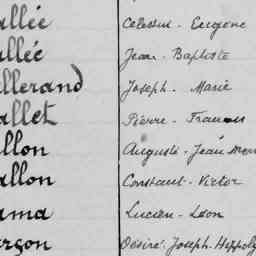 allée Celestin - Eugene
allée Jean - Baptiste
llerand Joseph - Marie
allet Pierre - Francois
allon Auguste - Jean Mari
allon Constant - Victor
ama Lucien - Leon
arçon Desiré - Joseph - Hippoly